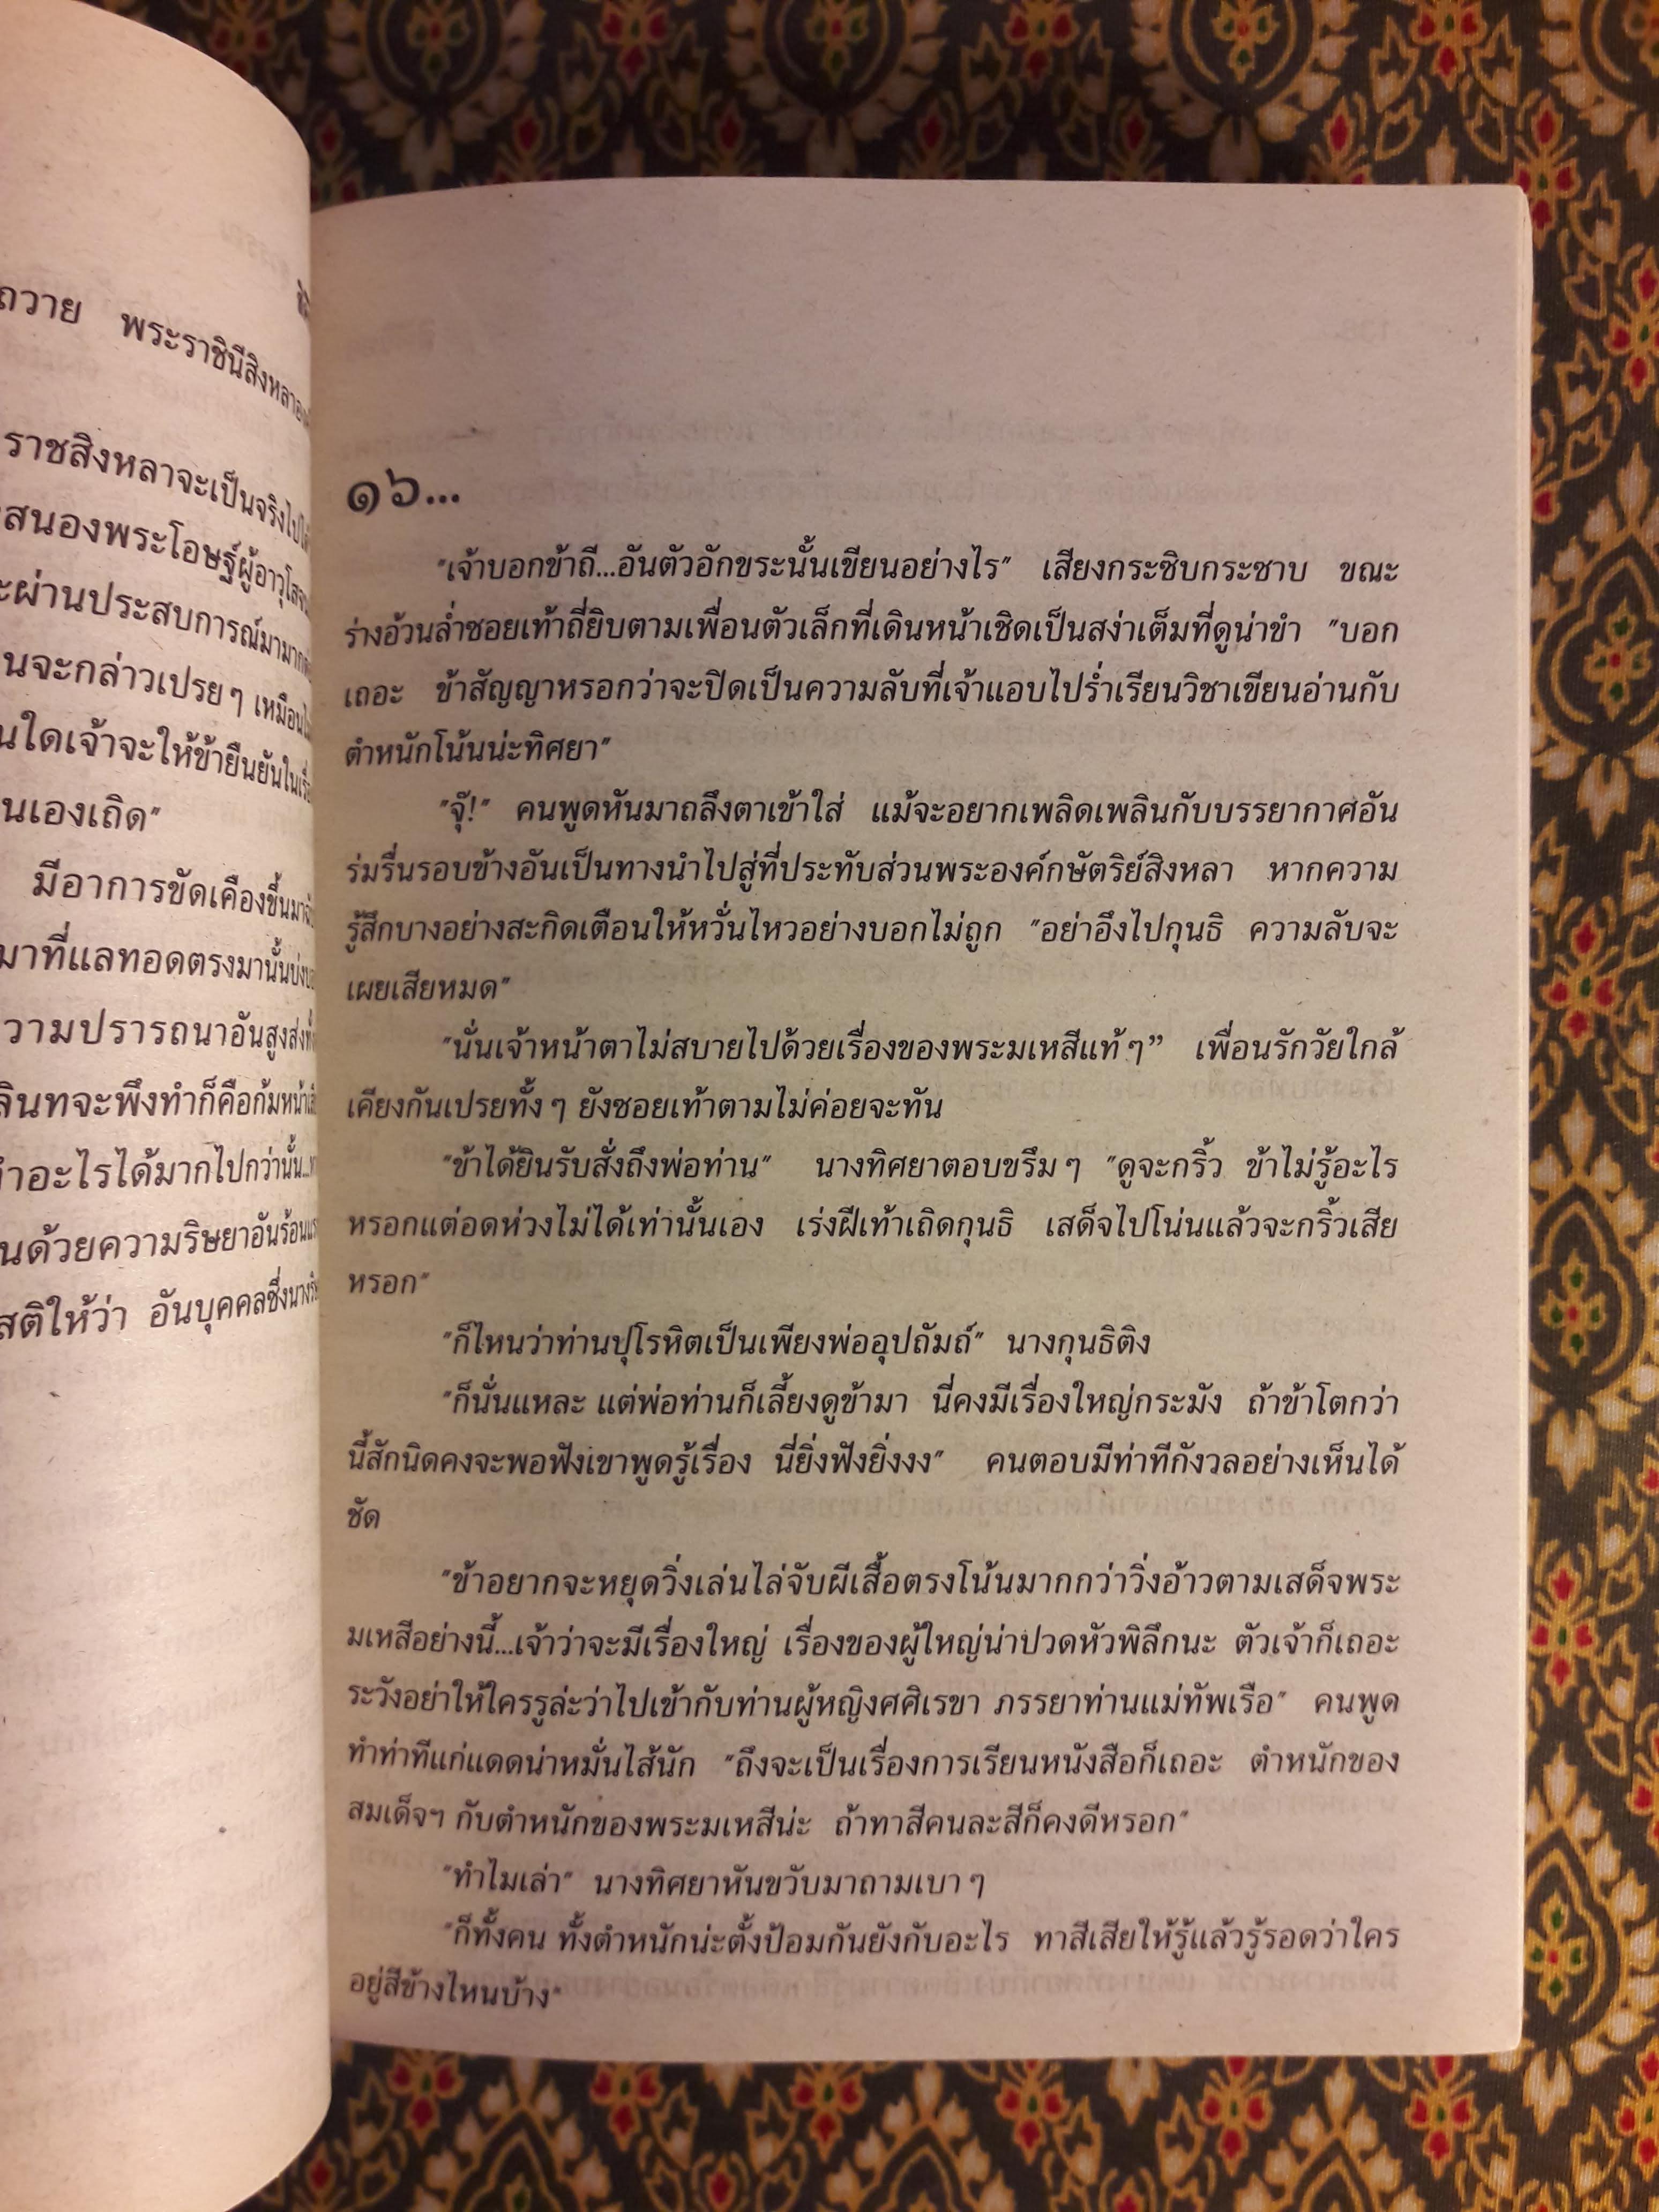 ถวาย พระราชินีสิงหลา
ราชสิงหลาจะเป็นจริงไปได้
สนองพระโอษฐ์ผู้อาวุโส
ผ่านประสบการณ์มามาก
จะกล่าวเปรยๆ เหมือน
ใดเจ้าจะให้ข้ายืนยันใน
นเองเถิด"
มีอาการขัดเคืองขึ้นมา
มาที่แลทอดตรงมานั้นบ่ง
วามปรารถนาอันสูงส่ง
ลินทจะพึงทำก็คือก้มหน้า
ทำอะไรได้มากไปกว่านั้น...
นด้วยความริษยาอันร้อน
สติให้ว่า อันบุคคลซึ่งนาง
๑๖...
"เจ้าบอกข้าถี...อันตัวอักขระนั้นเขียนอย่างไร" เสียงกระซิบกระซาบ ขณะ
ร่างอ้วนล่ำซอยเท้าถี่ยิบตามเพื่อนตัวเล็กที่เดินหน้าเชิดเป็นสง่าเต็มที่ดูน่าขำ "บอก
เถอะ ข้าสัญญาหรอกว่าจะปิดเป็นความลับที่เจ้าแอบไปร่ำเรียนวิชาเขียนอ่านกับ
ตำหนักโน้นน่ะทิศยา"
"จุ๊!" คนพูดหันมาถลึงตาเข้าใส่ แม้จะอยากเพลิดเพลินกับบรรยากาศอัน
ร่มรื่นรอบข้างอันเป็นทางนำไปสู่ที่ประทับส่วนพระองค์กษัตริย์สิงหลา หากความ
รู้สึกบางอย่างสะกิดเตือนให้หวั่นไหวอย่างบอกไม่ถูก "อย่าอึงไปกุนธิ ความลับจะ
เผยเสียหมด"
"นั่นเจ้าหน้าตาไม่สบายไปด้วยเรื่องของพระมเหสีแท้ๆ" เพื่อนรักวัยใกล้
เคียงกันเปรยทั้งๆ ยังซอยเท้าตามไม่ค่อยจะทัน
"ข้าได้ยินรับสั่งถึงพ่อท่าน" นางทิศยาตอบขรึมๆ "ดูจะกริ้ว ข้าไม่รู้อะไร
หรอกแต่อดห่วงไม่ได้เท่านั้นเอง เร่งฝีเท้าเถิดกุนธิ เสด็จไปโน่นแล้วจะกริ้วเสีย
หรอก"
"ก็ไหนว่าท่านปุโรหิตเป็นเพียงพ่ออุปถัมถ์" นางกุนธิติง
"ก็นั่นแหละ แต่พ่อท่านก็เลี้ยงดูข้ามา นี่คงมีเรื่องใหญ่กระมัง ถ้าข้าโตกว่า
นี้สักนิดคงจะพอฟังเขาพูดรู้เรื่อง นี่ยิ่งฟังยิ่งงง" คนตอบมีท่าทีกังวลอย่างเห็นได้
ชัด
"ข้าอยากจะหยุดวิ่งเล่นไล่จับผีเสื้อตรงโน้นมากกว่าวิ่งอ้าวตามเสด็จพระ
มเหสีอย่างนี้...เจ้าว่าจะมีเรื่องใหญ่ เรื่องของผู้ใหญ่น่าปวดหัวพิลึกนะ ตัวเจ้าก็เถอะ
ระวังอย่าให้ใครรูล่ะว่าไปเข้ากับท่านผู้หญิงศศิเรขา ภรรยาท่านแม่ทัพเรือ" คนพูด
ทำท่าทีแก่แดดน่าหมั่นไส้นัก "ถึงจะเป็นเรื่องการเรียนหนังสือก็เถอะ ตำหนักของ
สมเด็จฯ กับตำหนักของพระมเหสีน่ะ ถ้าทาสีคนละสีก็คงดีหรอก"
"ทำไมเล่า" นางทิศยาหันขวับมาถามเบาๆ
"ก็ทั้งคน ทั้งตำหนักน่ะตั้งป้อมกันยังกับอะไร ทาสีเสียให้รู้แล้วรู้รอดว่าใคร
อยู่สีข้างไหนบ้าง"